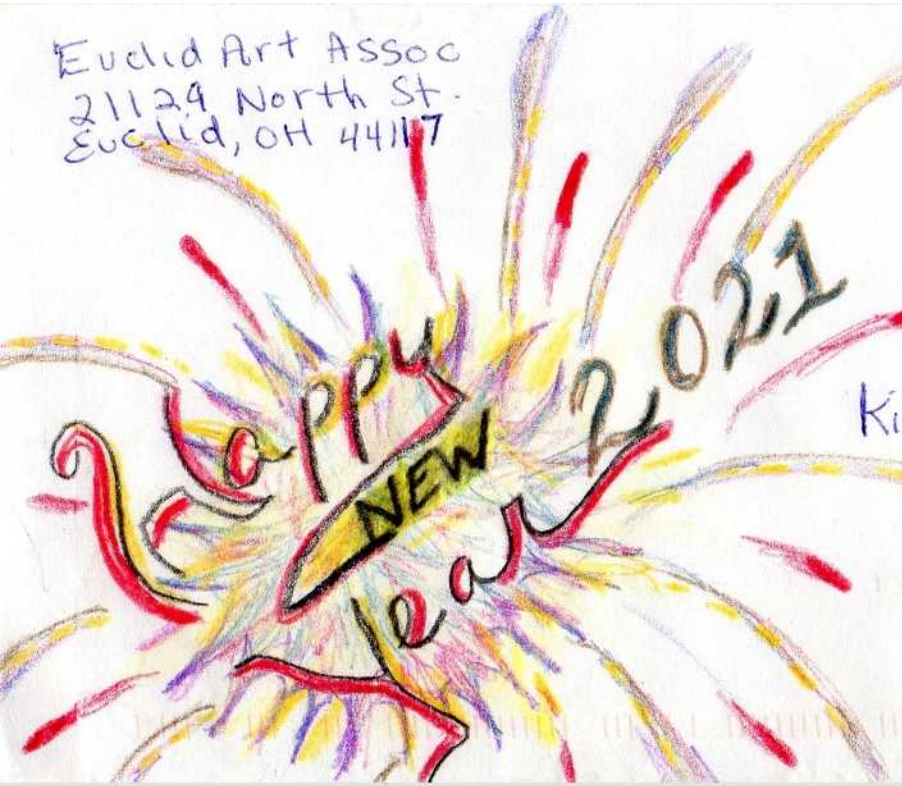 Euclid Art Assoc
21129 North St.
Euclid, OH 44117
Happy
NEW
Year
2021
Ki